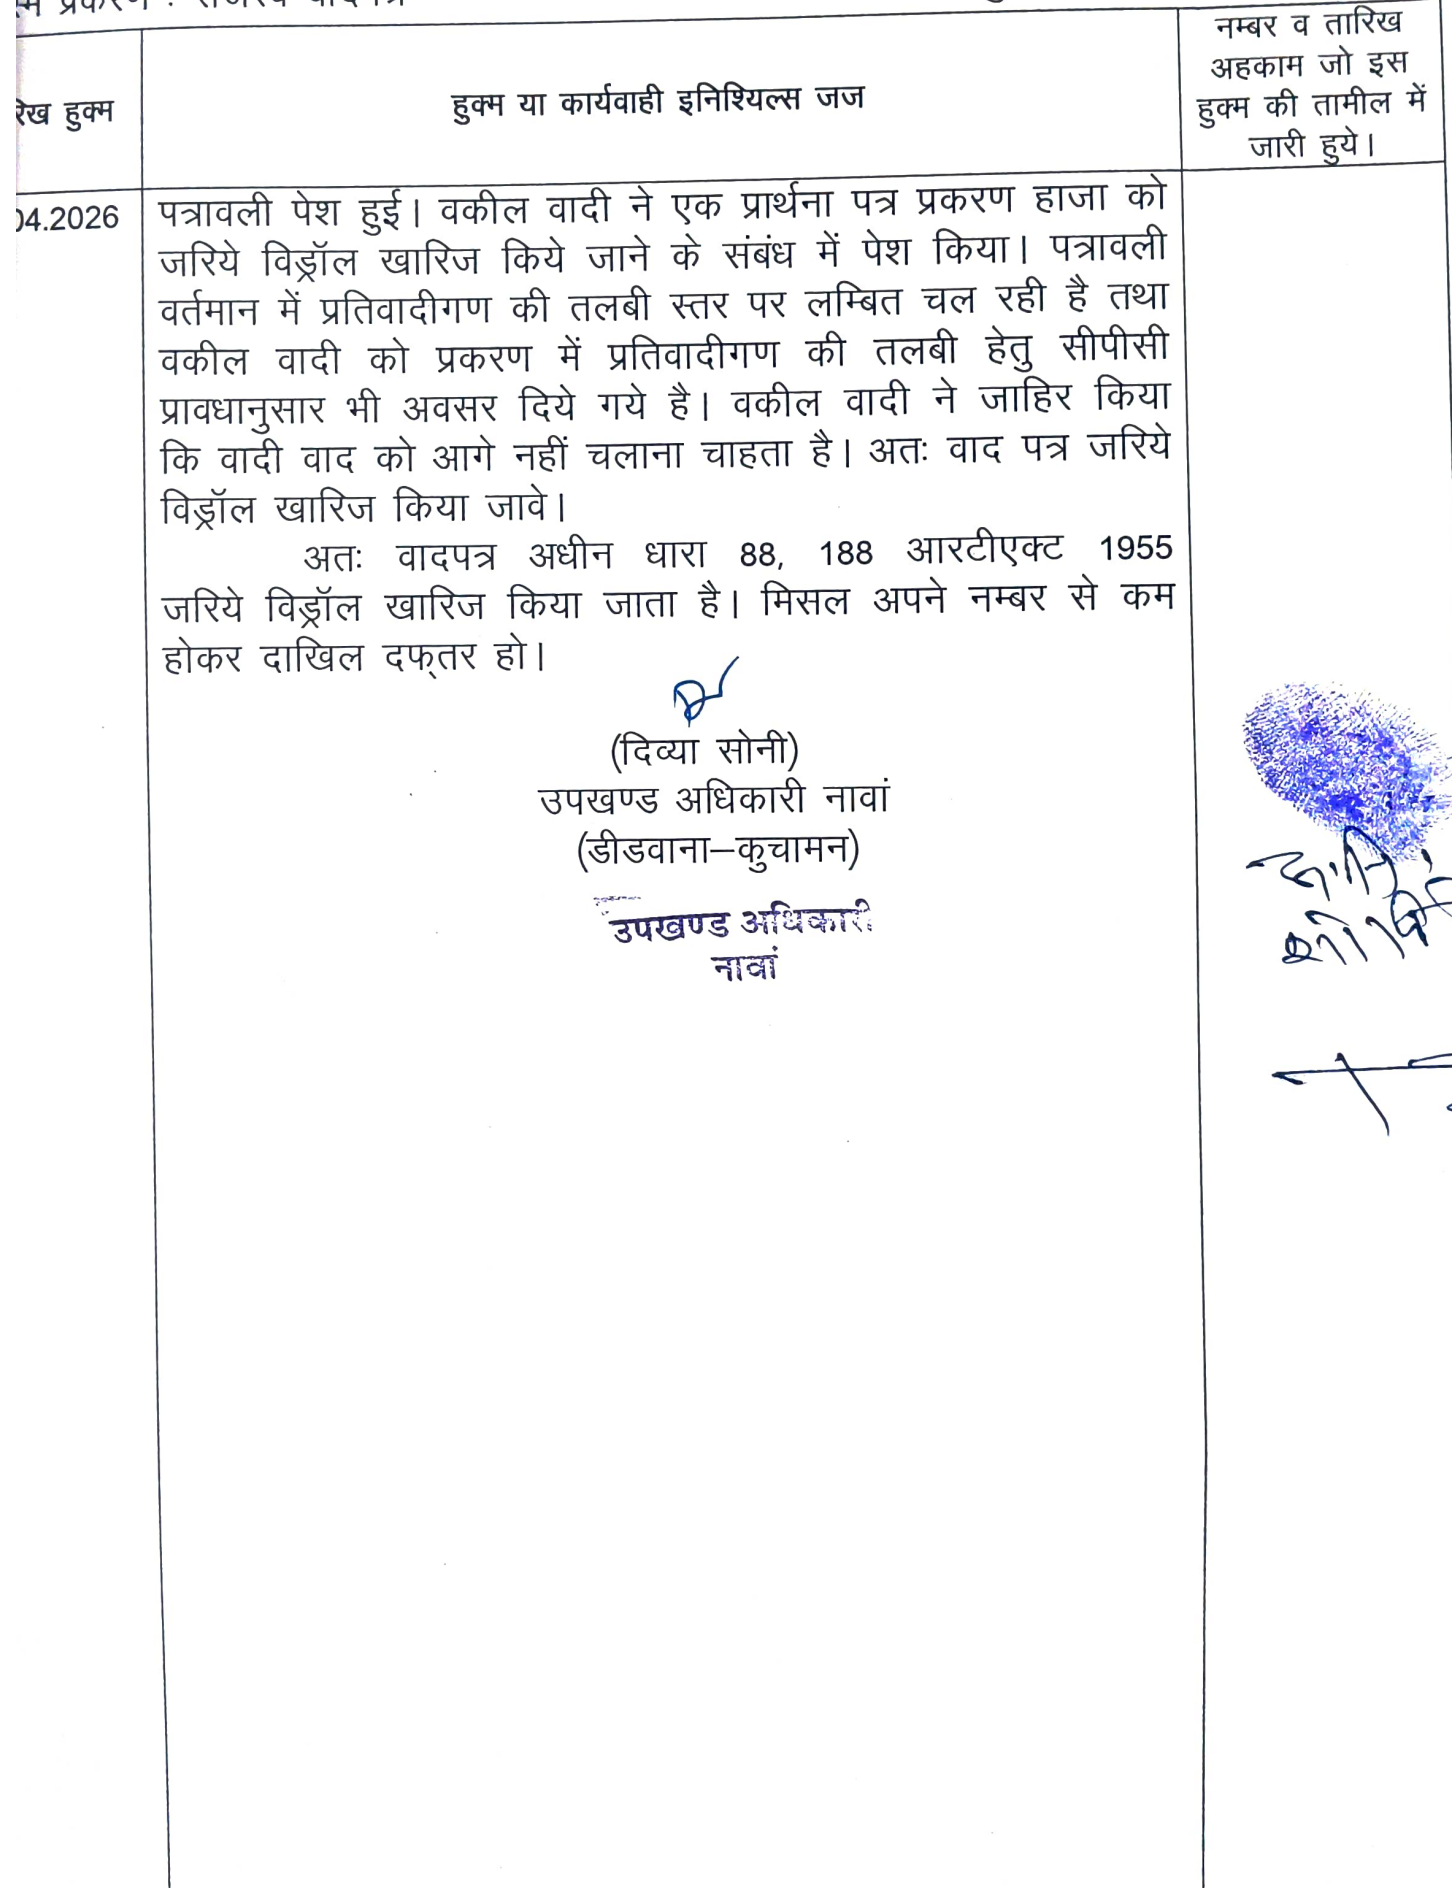 हुक्म
हुक्म या कार्यवाही इनिश्यिल्स जज
नम्बर व तारिख
अहकाम जो इस
हुक्म की तामील में
जारी हुये।
04.2026
पत्रावली पेश हुई। वकील वादी ने एक प्रार्थना पत्र प्रकरण हाजा को
जरिये विड्रॉल खारिज किये जाने के संबंध में पेश किया। पत्रावली
वर्तमान में प्रतिवादीगण की तलबी स्तर पर लम्बित चल रही है तथा
वकील वादी को प्रकरण में प्रतिवादीगण की तलबी हेतु सीपीसी
प्रावधानुसार भी अवसर दिये गये है। वकील वादी ने जाहिर किया
कि वादी वाद को आगे नहीं चलाना चाहता है। अतः वाद पत्र जरिये
विड्रॉल खारिज किया जावे।
अतः वादपत्र अधीन धारा 88, 188 आरटीएक्ट 1955
जरिये विड्रॉल खारिज किया जाता है। मिसल अपने नम्बर से कम
होकर दाखिल दफ्तर हो।
(दिव्या सोनी)
उपखण्ड अधिकारी नावां
(डीडवाना–कुचामन)
उपखण्ड अधिकारी
नावां